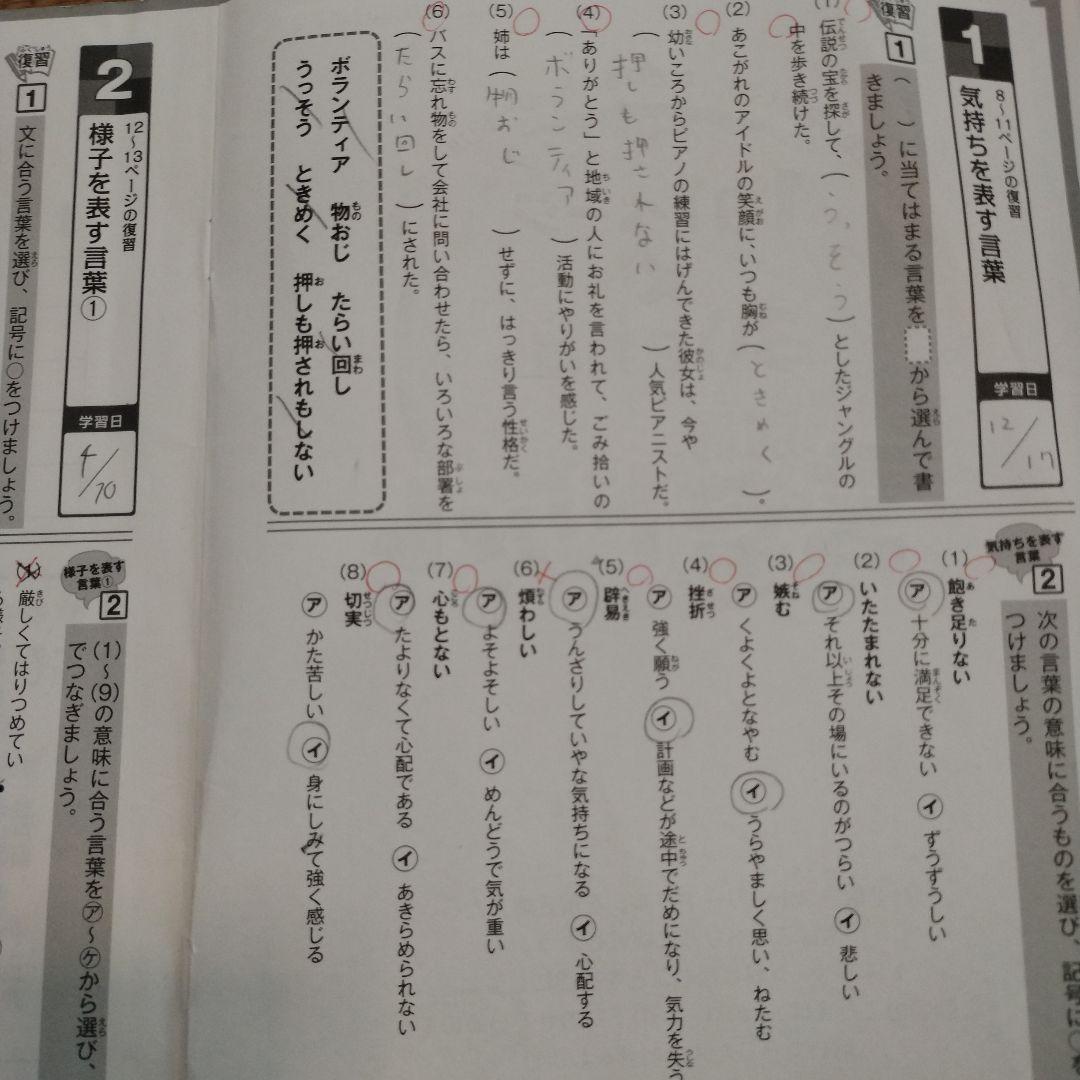 1
8～11ページの復習
気持ちを表す言葉
学習日
12/17
復習
1
（　）に当てはまる言葉を　から選んで書
きましょう。
(1) 伝説の宝を探して、（うっそう）としたジャングルの
中を歩き続けた。
(2) あこがれのアイドルの笑顔に、いつも胸が（ときめく）。
(3) 幼いころからピアノの練習にはげんできた彼女は、今や
（押しも押されない）人気ピアニストだ。
(4) 「ありがとう」と地域の人にお礼を言われて、ごみ拾いの
（ボランティア）活動にやりがいを感じた。
(5) 姉は（物おじ）せずに、はっきり言う性格だ。
(6) バスに忘れ物をして会社に問い合わせたら、いろいろな部署を
（たらい回し）にされた。
ボランティア　物おじ　たらい回し
うっそう　ときめく　押しも押されもしない
気持ちを表す
言葉
2
次の言葉の意味に合うものを選び、記号に○を
つけましょう。
(1) 飽き足りない
ア 十分に満足できない　イ ずうずうしい
(2) いたたまれない
ア それ以上その場にいるのがつらい　イ 悲しい
(3) 嫉む
ア くよくよとなやむ　イ うらやましく思い、ねたむ
(4) 挫折
ア 強く願う　イ 計画などが途中でだめになり、気力を失う
(5) 辟易
ア うんざりしていやな気持ちになる　イ 心配する
(6) 煩わしい
ア よそよそしい　イ めんどうで気が重い
(7) 心もとない
ア たよりなくて心配である　イ あきらめられない
(8) 切実
ア かた苦しい　イ 身にしみて強く感じる
2
12～13ページの復習
様子を表す言葉①
学習日
4/10
復習
1
文に合う言葉を選び、記号に○をつけましょう。
様子を表す
言葉①
2
(1)～(9)の意味に合う言葉を㋐～㋘から選び、
でつなぎましょう。
(1) 厳しくてはりつめてい